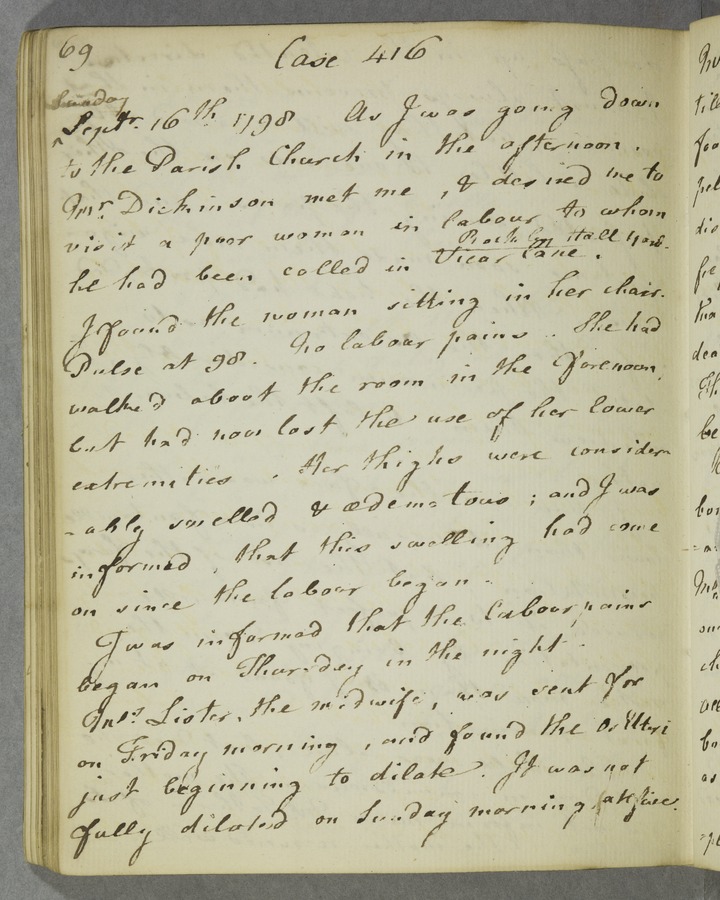 69 Case 416
Sunday
^ Septr. 16th 1798 As I was going down
to the Parish Church in the afternoon.
Mr. Dickinson met me, & desired me to
visit a poor woman in labour to whom
Hall
he had been called in Vicar Lane.
I found the woman sitting in her chair.
Pulse at 98. No labour pains. She had
walked about the room in the forenoon,
but had now lost the use of her lower
extremities. Her thighs were consider-
-ably swelled & œdematous; and I was
informed, that this swelling had come
on since the labour began.
I was informed that the labour pains
began on Thursday in the night.
Mrs. Lister, the midwife, was sent for
on Friday morning, and found the Os Uteri
just beginning to dilate. It was not
fully dilated on Sunday morning at five.